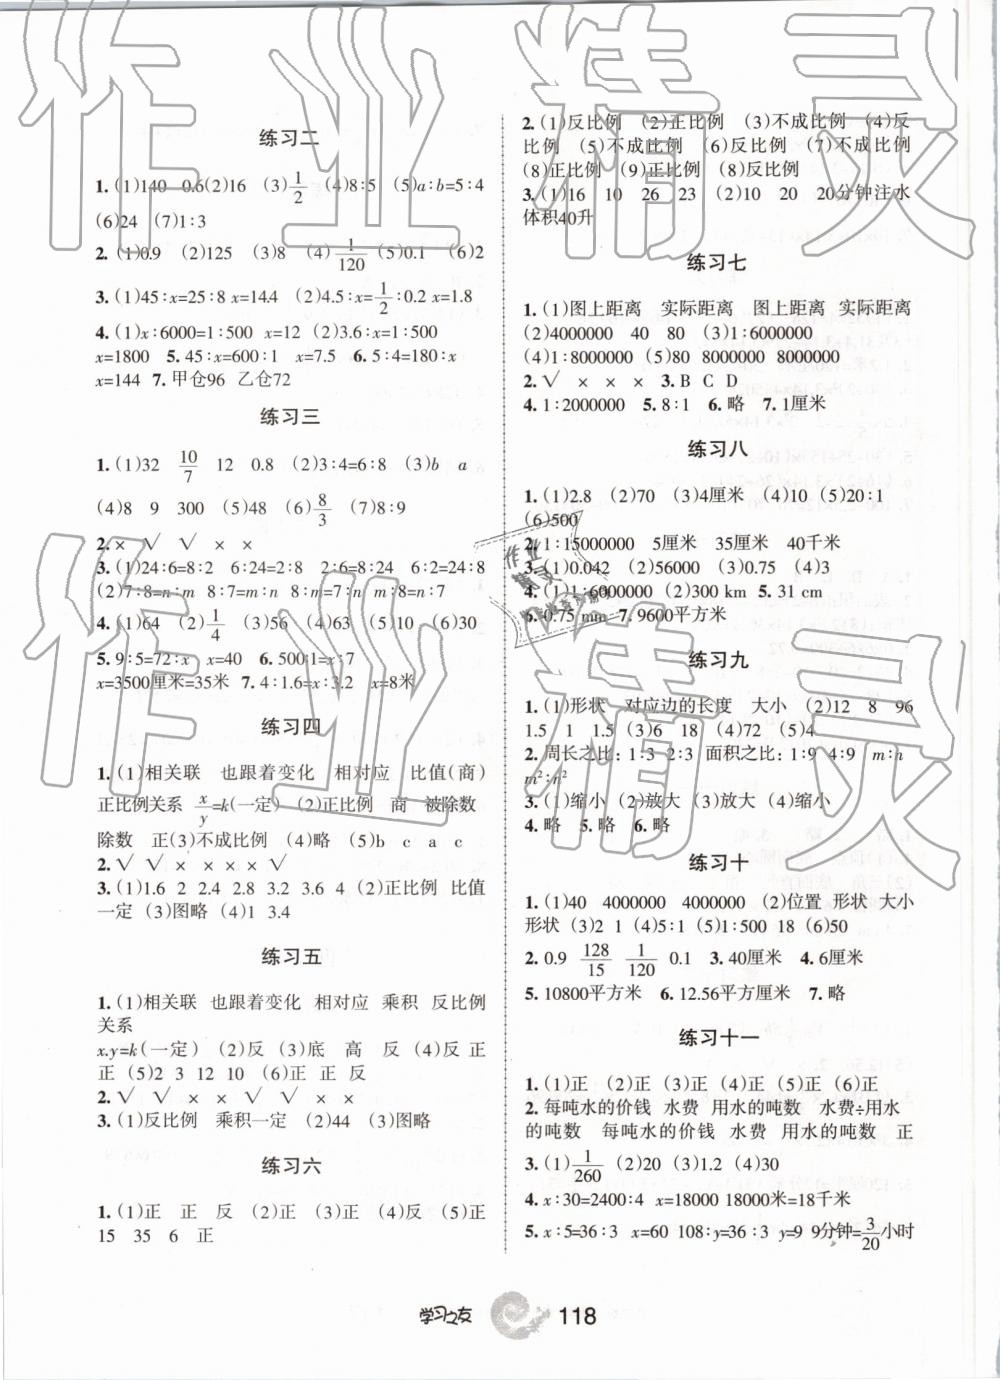 练习二
1.(1)140 0.6(2)16 (3)1/2 (4)8∶5 (5)a∶b=5∶4
(6)24 (7)1∶3
2.(1)0.9 (2)125 (3)8 (4)1/120 (5)0.1 (6)2
3.(1)45∶x=25∶8 x=14.4 (2)x=1/2∶0.2 x=1.8
4.(1)x∶6000=1∶500 x=12 (2)3.6∶x=1∶500
x=1800 5.45∶x=600∶1 x=7.5 6.5∶4=180∶x
x=144 7.甲仓96 乙仓72
练习三
1.(1)32 10/7 12 0.8 (2)3∶4=6∶8 (3)b a
(4)8 9 300 (5)48 (6)8/3 (7)8∶9
2.× √ √ × ×
3.(1)24∶6=8∶2 6∶24=2∶8 2∶8=6∶24 6∶2=24∶8
(2)7∶8=n∶m 8∶7=m∶n 8∶m=7∶n m∶8=n∶7
4.(1)64 (2)1/4 (3)56 (4)63 (5)10 (6)30
5.9∶5=72∶x x=40 6.500∶1=x∶7
x=3500厘米=35米 7.4∶1.6=x∶3.2 x=8米
练习四
1.(1)相关联 也跟着变化 相对应 比值(商)
正比例关系 x/y=k(一定) (2)正比例 商 被除数
除数 正(3)不成比例 (4)略 (5)b c a c
2.√ √ × × × × √
3.(1)1.6 2 2.4 2.8 3.2 3.6 4 (2)正比例 比值
一定 (3)图略 (4)1 3.4
练习五
1.(1)相关联 也跟着变化 相对应 乘积 反比例
关系
x.y=k(一定) (2)反 (3)底 高 反 (4)反 正
正 (5)2 3 12 10 (6)正 正 反
2.√ √ × × √ √ × ×
3.(1)反比例 乘积一定 (2)44 (3)图略
练习六
1.(1)正 正 反 (2)正 (3)正 (4)反 (5)正
15 35 6 正
2.(1)反比例 (2)正比例 (3)不成比例 (4)反
比例 (5)不成比例 (6)反比例 (7)不成比例
(8)正比例 (9)正比例 (8)反比例
3.(1)16 10 26 23 (2)10 20 20分钟注水
体积40升
练习七
1.(1)图上距离 实际距离 图上距离 实际距离
(2)4000000 40 80 (3)1∶6000000
(4)1∶8000000 (5)80 8000000 8000000
2.√ × × × 3.B C D
4.1∶2000000 5.8∶1 6.略 7.1厘米
练习八
1.(1)2.8 (2)70 (3)4厘米 (4)10 (5)20∶1
(6)500
2.1∶15000000 5厘米 35厘米 40千米
3.(1)0.042 (2)56000 (3)0.75 (4)3
4.(1)1∶6000000 (2)300 km 5.31 cm
6.0.75 mm 7.9600平方米
练习九
1.(1)形状 对应边的长度 大小 (2)12 8 96
1.5 1 1.5 (3)6 18 (4)72 (5)4
2.周长之比:1∶3 2∶3 面积之比:1∶9 4∶9 m∶n
m²∶n²
3.(1)缩小 (2)放大 (3)放大 (4)缩小
4.略 5.略 6.略
练习十
1.(1)40 4000000 4000000 (2)位置 形状 大小
形状 (3)2 1 (4)5∶1 (5)1∶500 18 (6)50
2.0.9 128/15 1/120 0.1 3.40厘米 4.6厘米
5.10800平方米 6.12.56平方厘米 7.略
练习十一
1.(1)正 (2)正 (3)正 (4)正 (5)正 (6)正
2.每吨水的价钱 水费 用水的吨数 水费÷用水
的吨数 每吨水的价钱 水费 用水的吨数 正
3.(1)1/260 (2)20 (3)1.2 (4)30
4.x∶30=2400∶4 x=18000 18000米=18千米
5.x∶5=36∶3 x=60 108∶y=36∶3 y=9 9分钟=3/20小时
学习之友 118
作业精灵
作业精灵
作业精灵